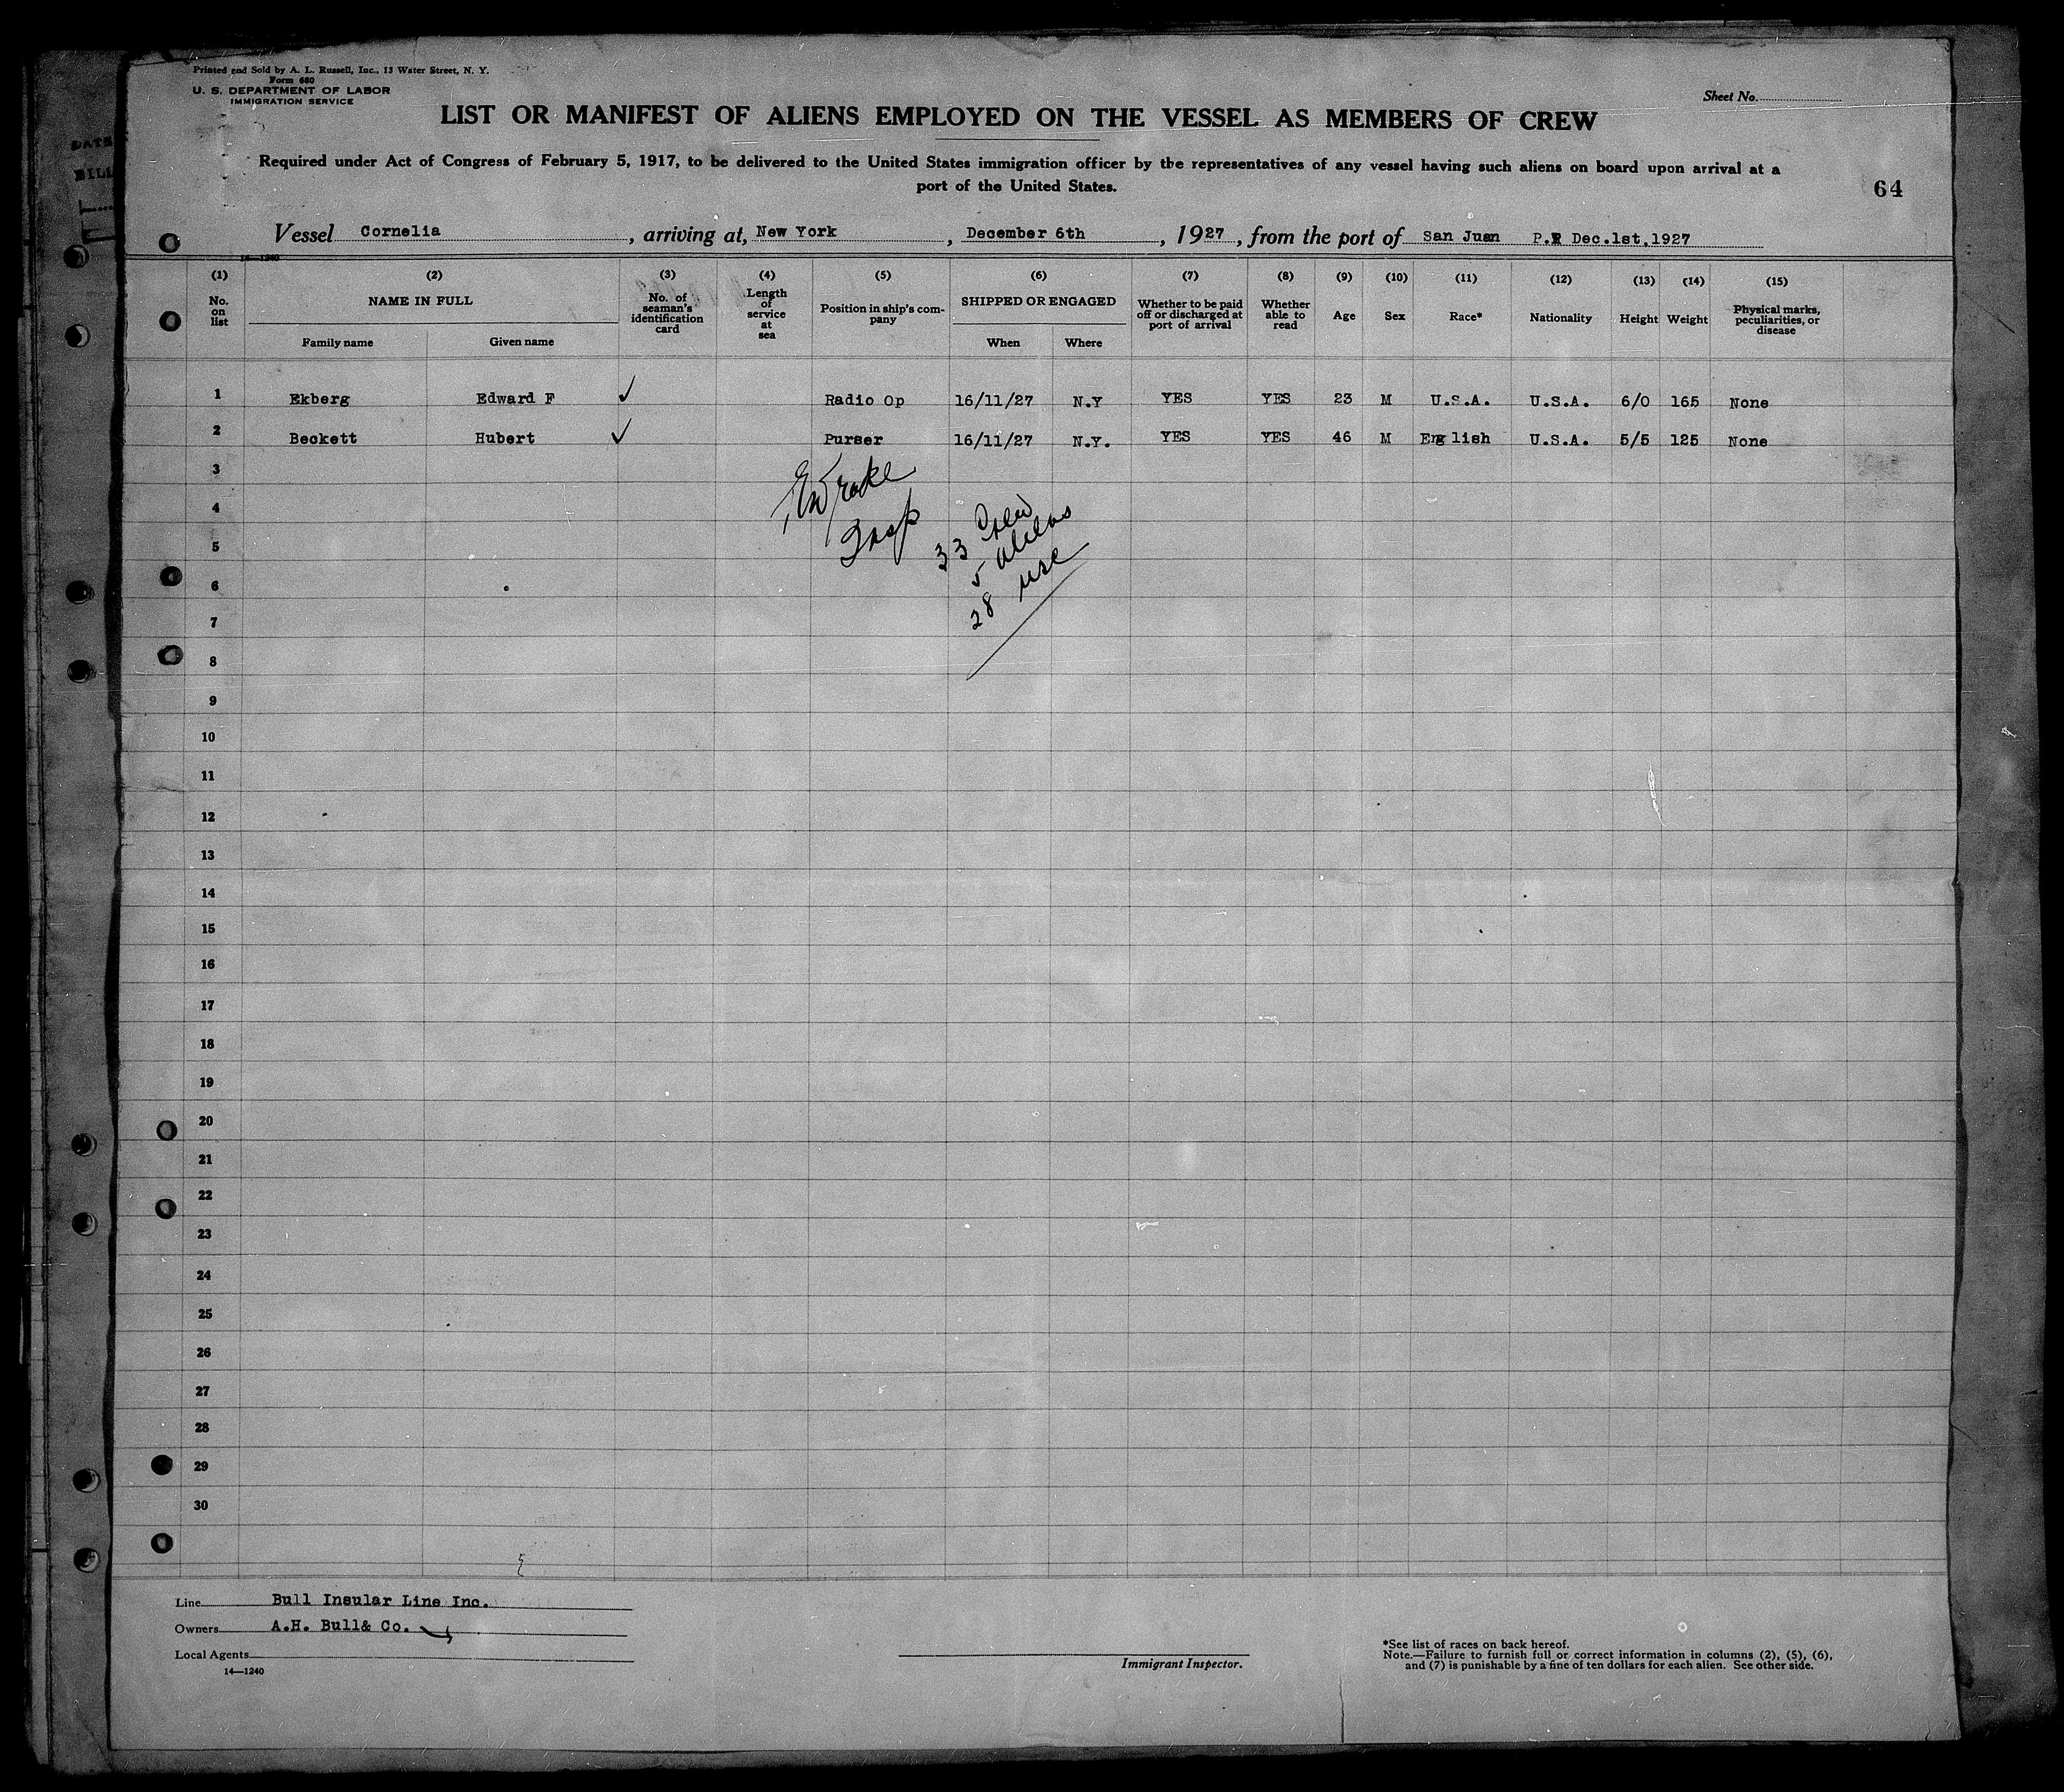 Printed and Sold by A. L. Russell, Inc., 13 Water Street, N. Y.
Form 680
U. S. DEPARTMENT OF LABOR
IMMIGRATION SERVICE
Sheet No.
LIST OR MANIFEST OF ALIENS EMPLOYED ON THE VESSEL AS MEMBERS OF CREW
Required under Act of Congress of February 5, 1917, to be delivered to the United States immigration officer by the representatives of any vessel having such aliens on board upon arrival at a
port of the United States.
64
DATE
BILL
Vessel Cornelia, arriving at, New York, December 6th, 1927, from the port of San Juan P.R Dec.1st,1927
14—1240
(1) (2) (3) (4) (5) (6) (7) (8) (9) (10) (11) (12) (13) (14) (15)
No. on list
NAME IN FULL
Family name Given name
No. of seaman's identification card
Length of service at sea
Position in ship's company
SHIPPED OR ENGAGED
When Where
Whether to be paid off or discharged at port of arrival
Whether able to read
Age Sex Race* Nationality Height Weight
Physical marks, peculiarities, or disease
1 Ekberg Edward F ✓ Radio Op 16/11/27 N.Y YES YES 23 M U.S.A. U.S.A. 6/0 165 None
2 Beckett Hubert ✓ Purser 16/11/27 N.Y. YES YES 46 M English U.S.A. 5/5 125 None
3
4
5
6
7
8
9
10
11
12
13
14
15
16
17
18
19
20
21
22
23
24
25
26
27
28
29
30
Drake
Insp
33 Crew
5 aliens
28 usc
Line Bull Insular Line Inc.
Owners A.H. Bull& Co.
Local Agents
14—1240
Immigrant Inspector.
*See list of races on back hereof.
Note.—Failure to furnish full or correct information in columns (2), (5), (6),
and (7) is punishable by a fine of ten dollars for each alien. See other side.